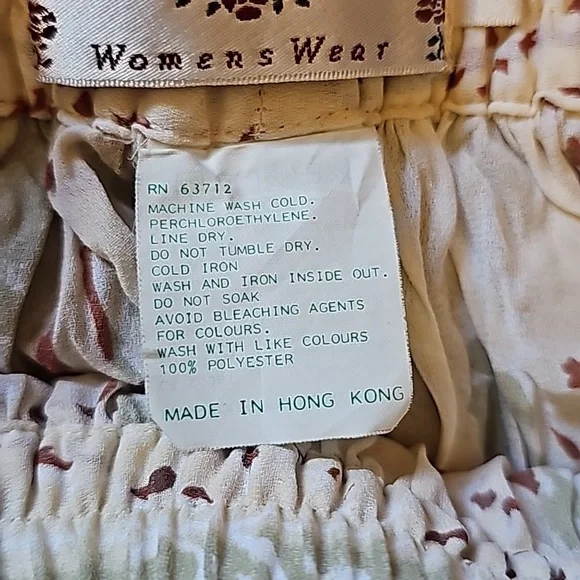 Womens Wear
RN 63712
MACHINE WASH COLD.
PERCHLOROETHYLENE.
LINE DRY.
DO NOT TUMBLE DRY.
COLD IRON
WASH AND IRON INSIDE OUT.
DO NOT SOAK
AVOID BLEACHING AGENTS
FOR COLOURS.
WASH WITH LIKE COLOURS
100% POLYESTER
MADE IN HONG KONG